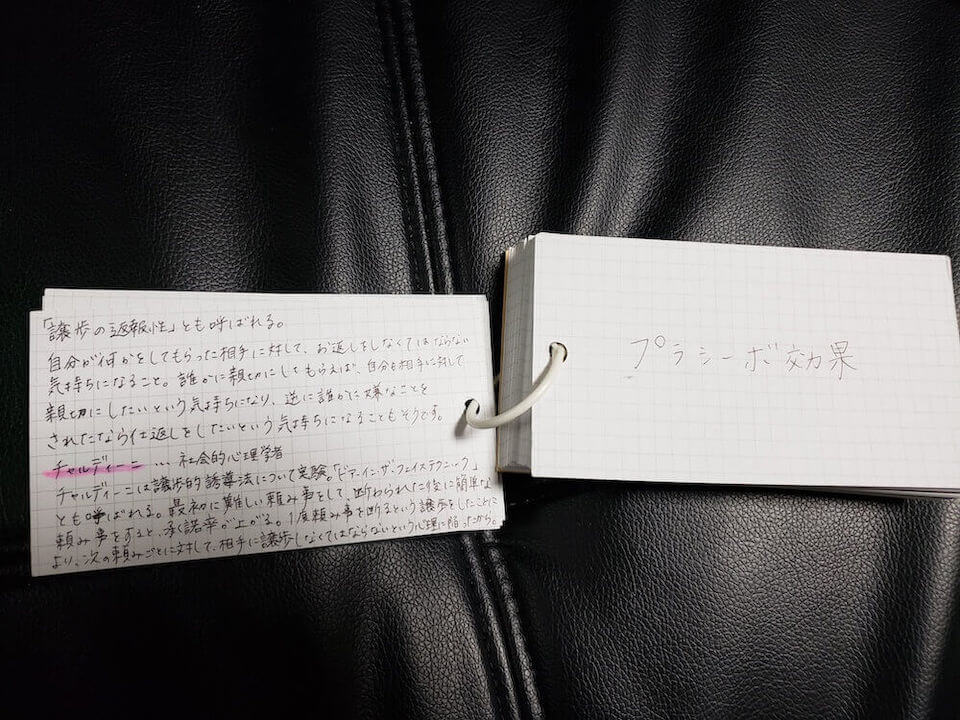 「譲歩の返報性」とも呼ばれる。
自分が何かをしてもらった相手に対して、お返しをしなくてはならない
気持ちになること。誰かに親切にしてもらえば、自分も相手に対して
親切にしたいという気持ちになり、逆に誰かに嫌なことを
されたなら仕返しをしたいという気持ちになることもそうです。
チャルディーニ … 社会的心理学者
チャルディーニは譲歩的誘導法について実験。「ドア・イン・ザ・フェイステクニック」
とも呼ばれる。最初に難しい頼み事をして、断わられた後に簡単な
頼み事をすると、承諾率が上がる。1度頼み事を断るという譲歩をしたことに
より、次の頼みごとに対して、相手に譲歩しなくてはならないという心理に陥ったから。
プラシーボ効果